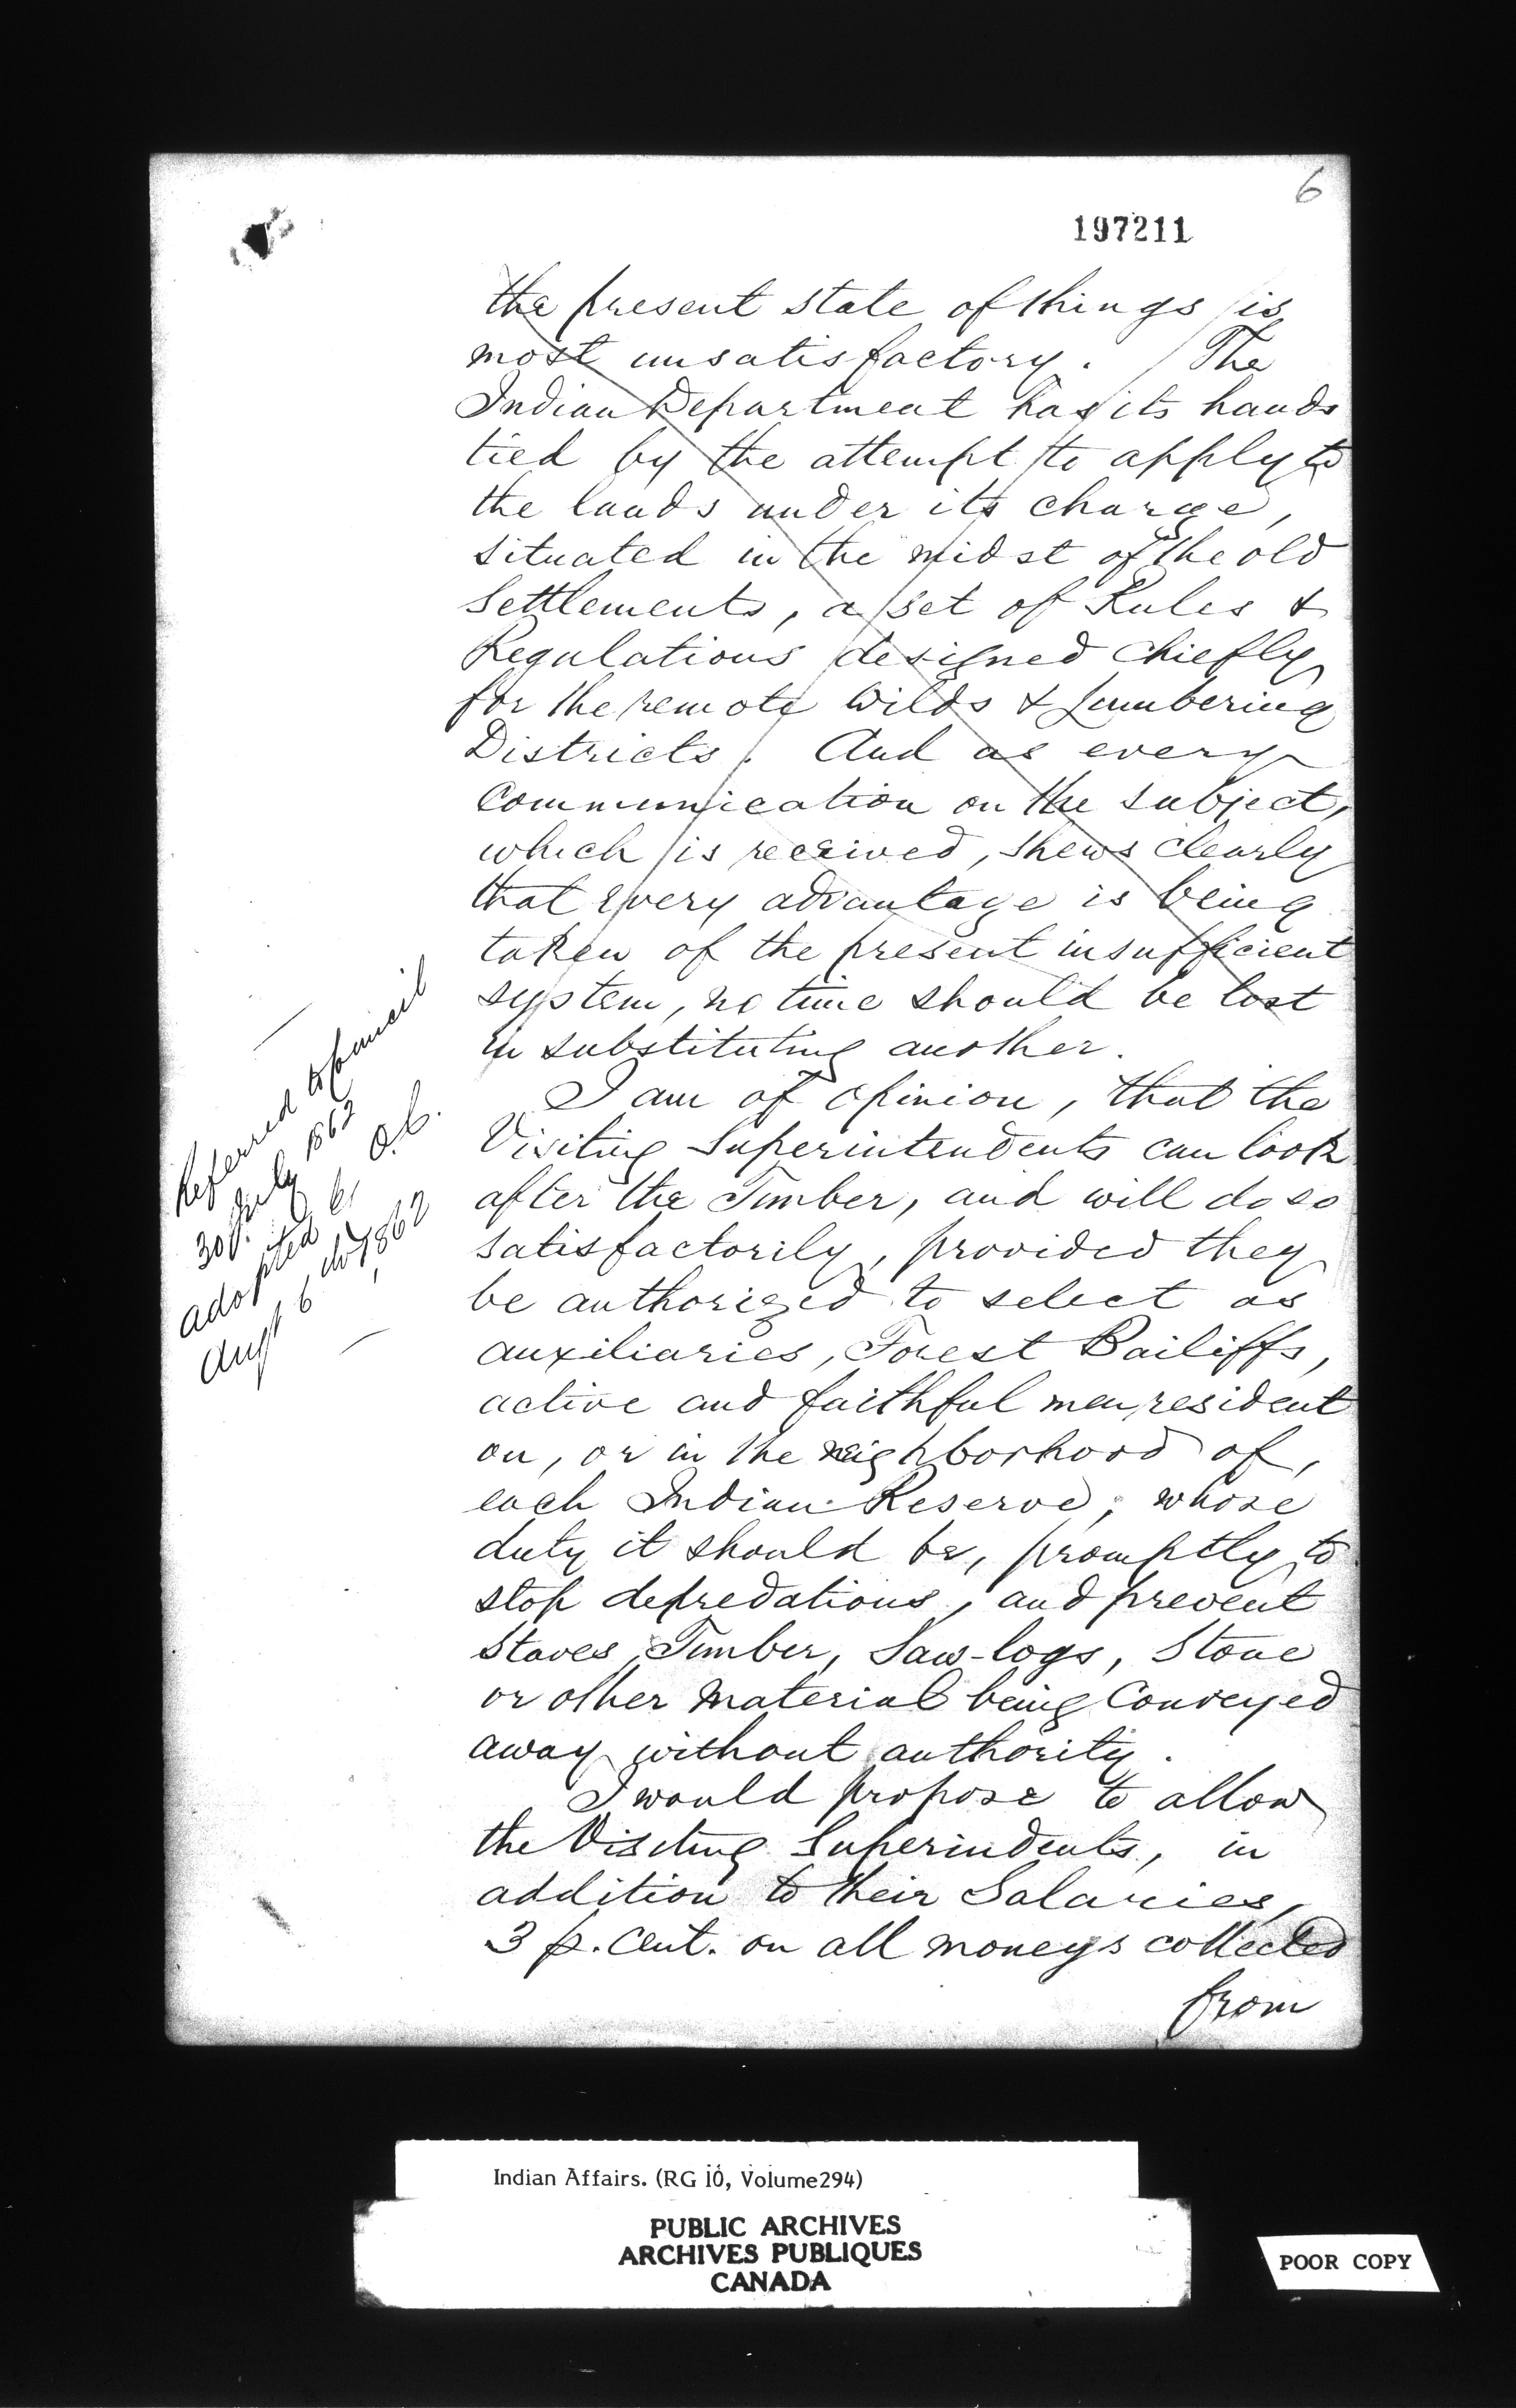 6
197211
the present state of things is
most unsatisfactory. The
Indian Department has its hands
tied by the attempt to apply to
the lands under its charge,
situated in the midst of the old
Settlements, a set of Rules &
Regulations designed chiefly
for the remote Wilds & Lumbering
Districts. And as every
Communication on the subject,
which is received, shews clearly
that every advantage is being
taken of the present insufficient
system, no time should be lost
in substituting another.
I am of opinion, that the
Visiting Superintendents can look
after the Timber, and will do so
satisfactorily, provided they
be authorized to select as
auxiliaries, Forest Bailiffs,
active and faithful men, resident
on, or in the neighborhood of,
each Indian Reserve; whose
duty it should be, promptly to
stop depredations, and prevent
Staves, Timber, Saw-logs, Stone
or other Material being Conveyed
away without authority.
I would propose to allow
the Visiting Superindents, in
addition to their Salaries,
3 p. Cent. on all moneys collected
from
Referred to Council
30 July 1862
adopted by O.C.
Augt 6 1862
Indian Affairs. (RG 10, Volume294)
PUBLIC ARCHIVES
ARCHIVES PUBLIQUES
CANADA
POOR COPY